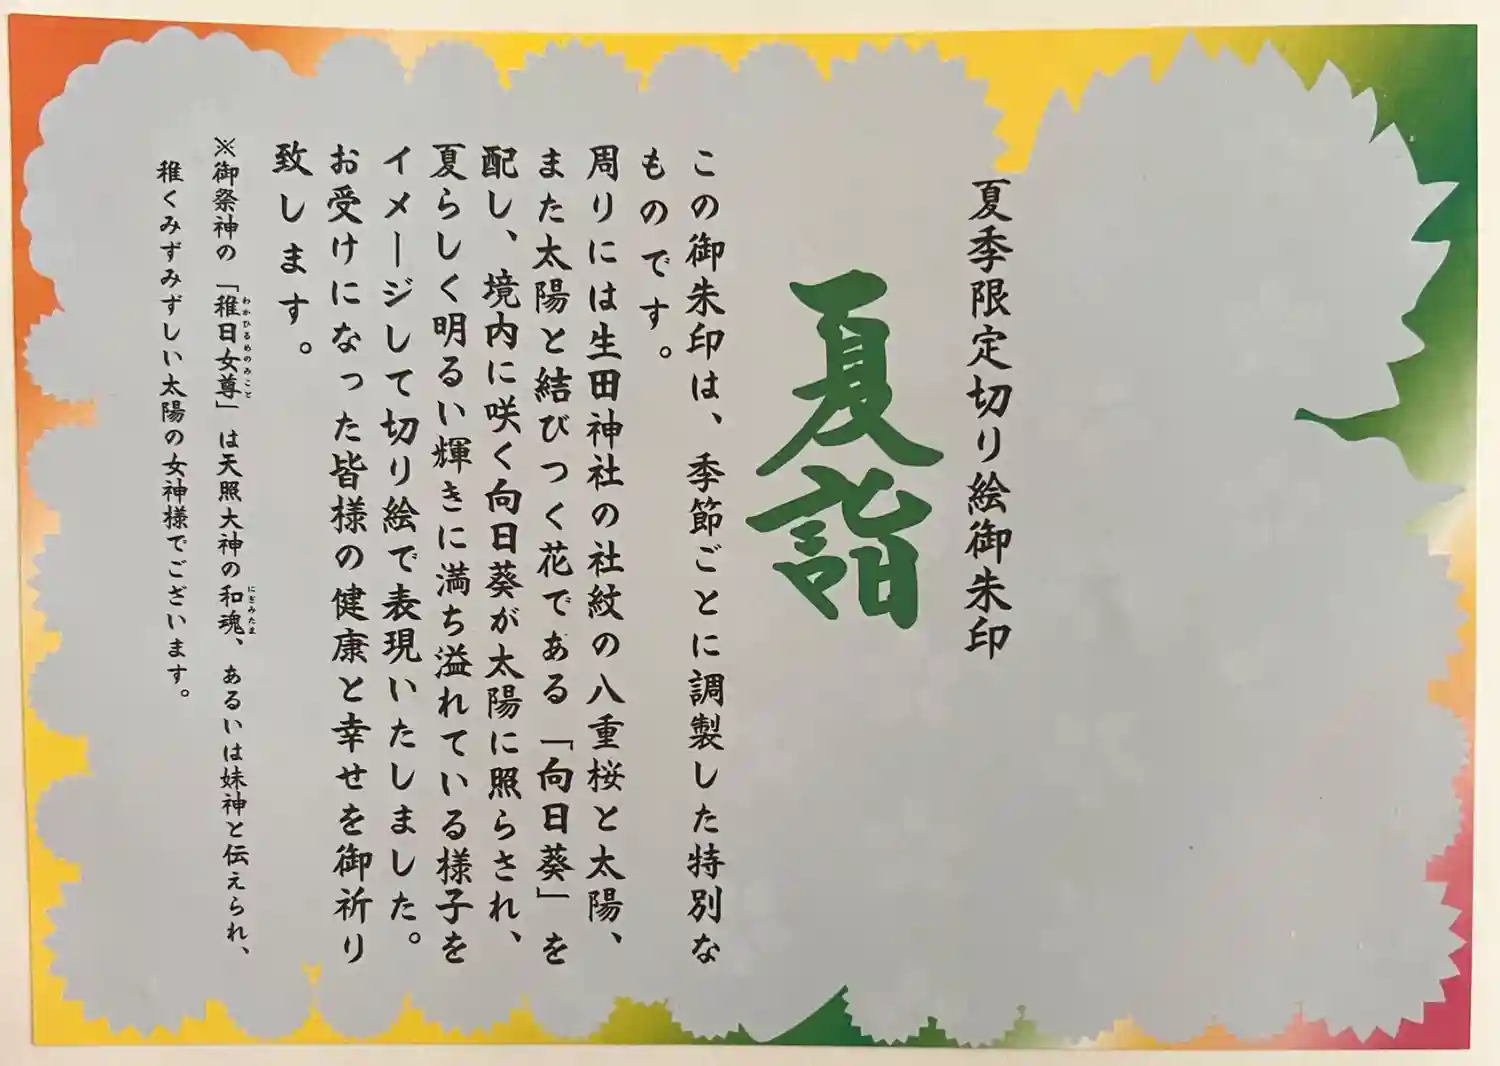 夏季限定切り絵御朱印
夏詣
この御朱印は、季節ごとに調製した特別な
ものです。
周りには生田神社の社紋の八重桜と太陽、
また太陽と結びつく花である「向日葵」を
配し、境内に咲く向日葵が太陽に照らされ、
夏らしく明るい輝きに満ち溢れている様子を
イメージして切り絵で表現いたしました。
お受けになった皆様の健康と幸せを御祈り
致します。
※御祭神の「稚日女尊」は天照大神の和魂、あるいは妹神と伝えられ、
わかひるめのみこと
にぎみたま
稚くみずみずしい太陽の女神様でございます。